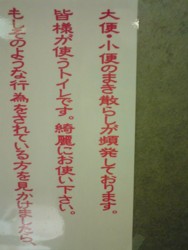 大便・小便のまき散らしが頻発しております。
皆様が使うトイレです。綺麗にお使い下さい。
もしそのような行為をされている方を見かけましたら、